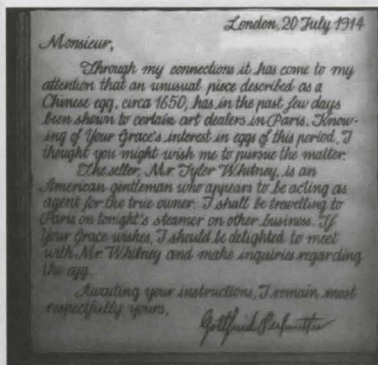 London, 20 July 1914
Monsieur,
Through my connections it has come to my
attention that an unusual piece described as a
Chinese egg, circa 1650, has in the past few days
been shown to certain art dealers in Paris. Know-
ing of Your Grace's interest in eggs of this period, I
thought you might wish me to pursue the matter.
The seller, Mr. Tyler Whitney, is an
American gentleman who appears to be acting as
agent for the true owner. I shall be travelling to
Paris on tonight's steamer on other business. If
Your Grace wishes, I should be delighted to meet
with Mr. Whitney and make inquiries regarding
the egg.
Awaiting your instructions, I remain most
respectfully yours,
Gottfried